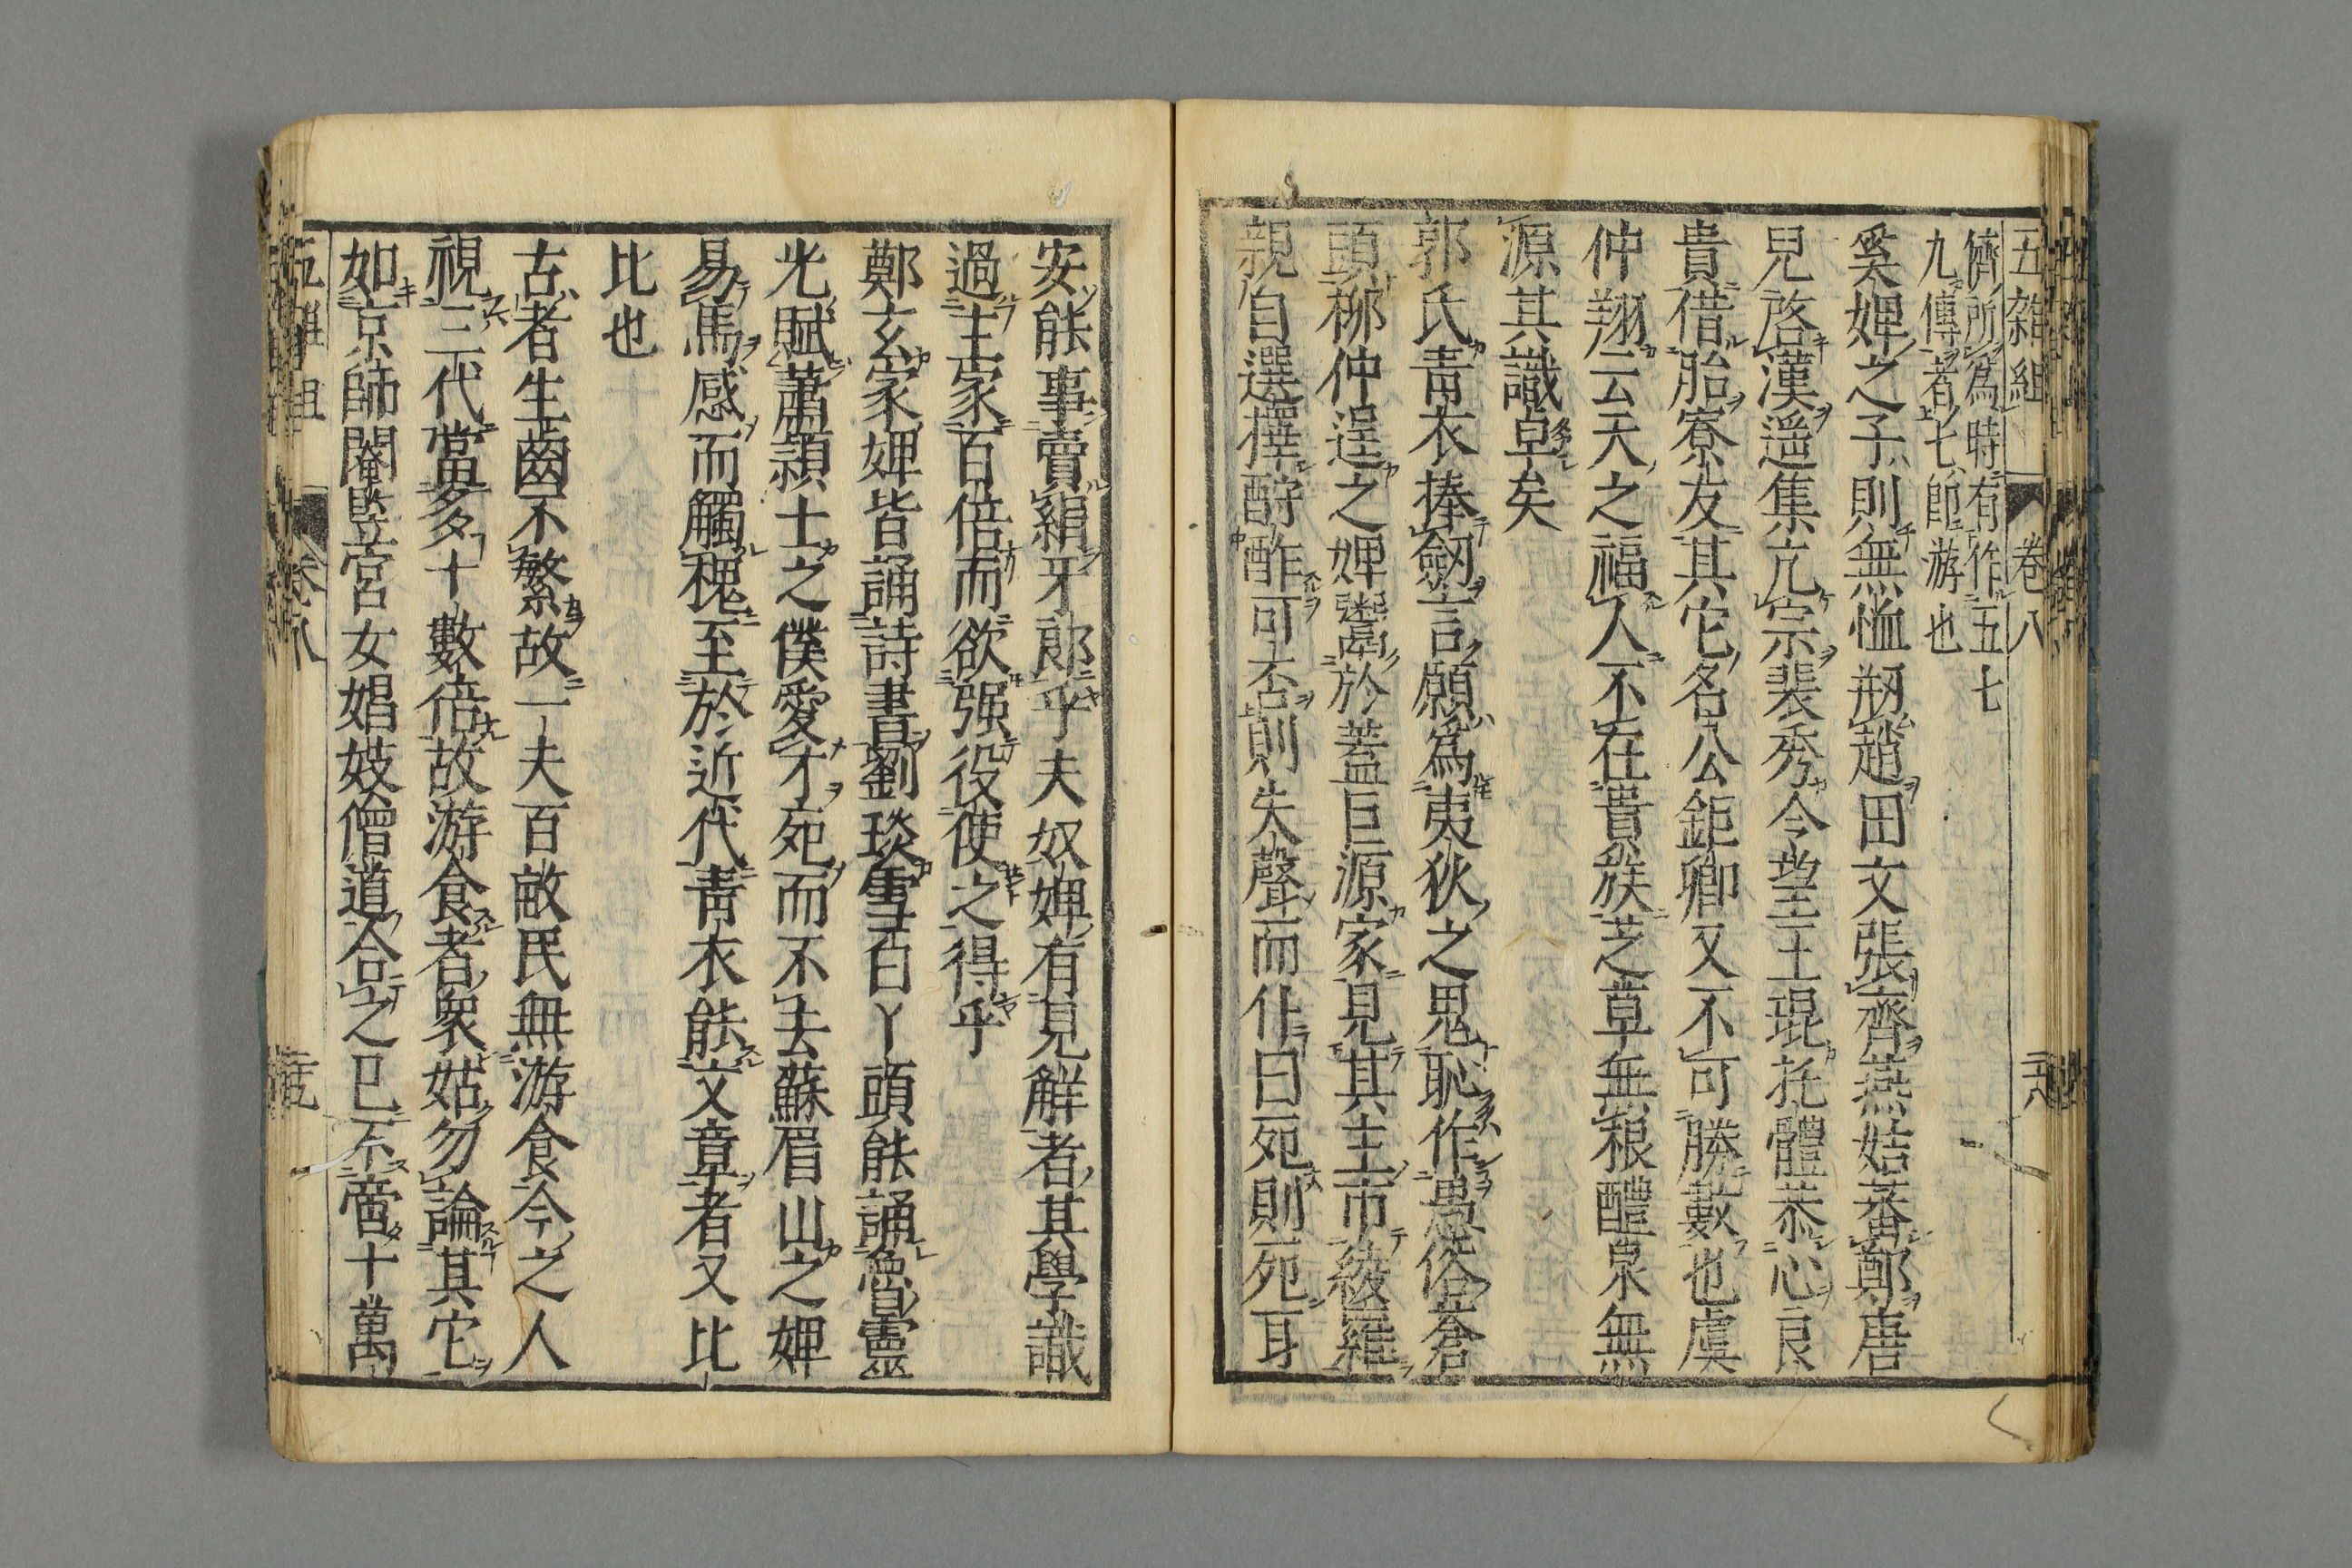 五雜組 卷八
儕所爲時有作五七
九傳者七師游也
奚婢之子則無恤剏趙田文張齊燕姞蕃鄭唐
兒啓漢遥集亢宗裴秀令望王琨托體恭心良
貴借胎寮友其它名公鉅卿又不可勝數也虞
仲翔云天之福人不在貴族芝草無根醴泉無
源其識卓矣
郭氏靑衣捧劒言願爲夷狄之鬼恥作愚俗蒼
頭柳仲逞之婢鬻於蓋巨源家見其主市綾羅
親自選擇酧酢可否則失聲而仆曰死則死耳
安能事賣絹牙郎乎夫奴婢有見解者其學識
過主家百倍而欲强役使之得乎
鄭玄家婢皆誦詩書劉琰隻百丫頭能誦魯靈
光賦蕭頴士之僕愛才死而不去蘇眉山之婢
易馬感而觸槐至於近代靑衣能文章者又比
比也
古者生齒不繁故一夫百畝民無游食今之人
視三代當多十數倍故游食者衆姑勿論其它
如京師閹竪宮女娼妓僧道合之已不啻十萬
五雜組 卷八